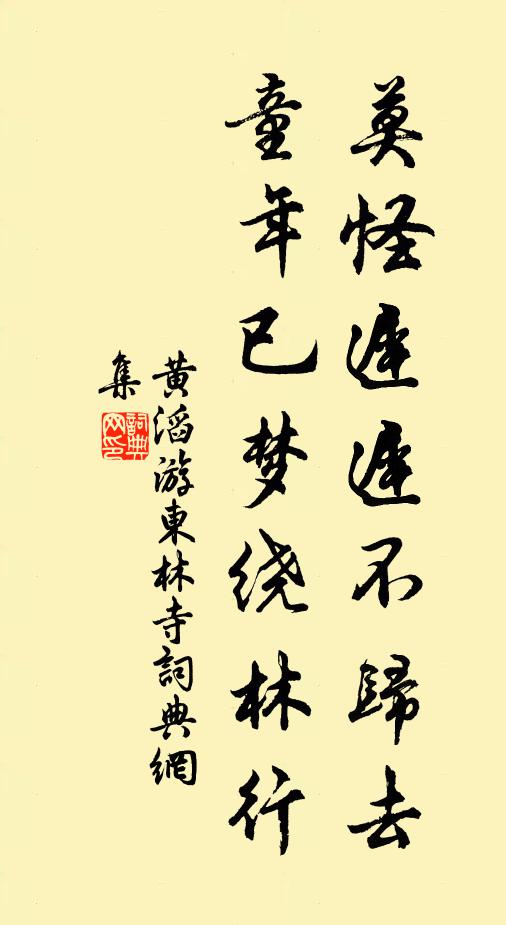 莫怪遲遲不歸去
童年已梦绕林行
黄滔游東林寺詞典網
集
詞典网印